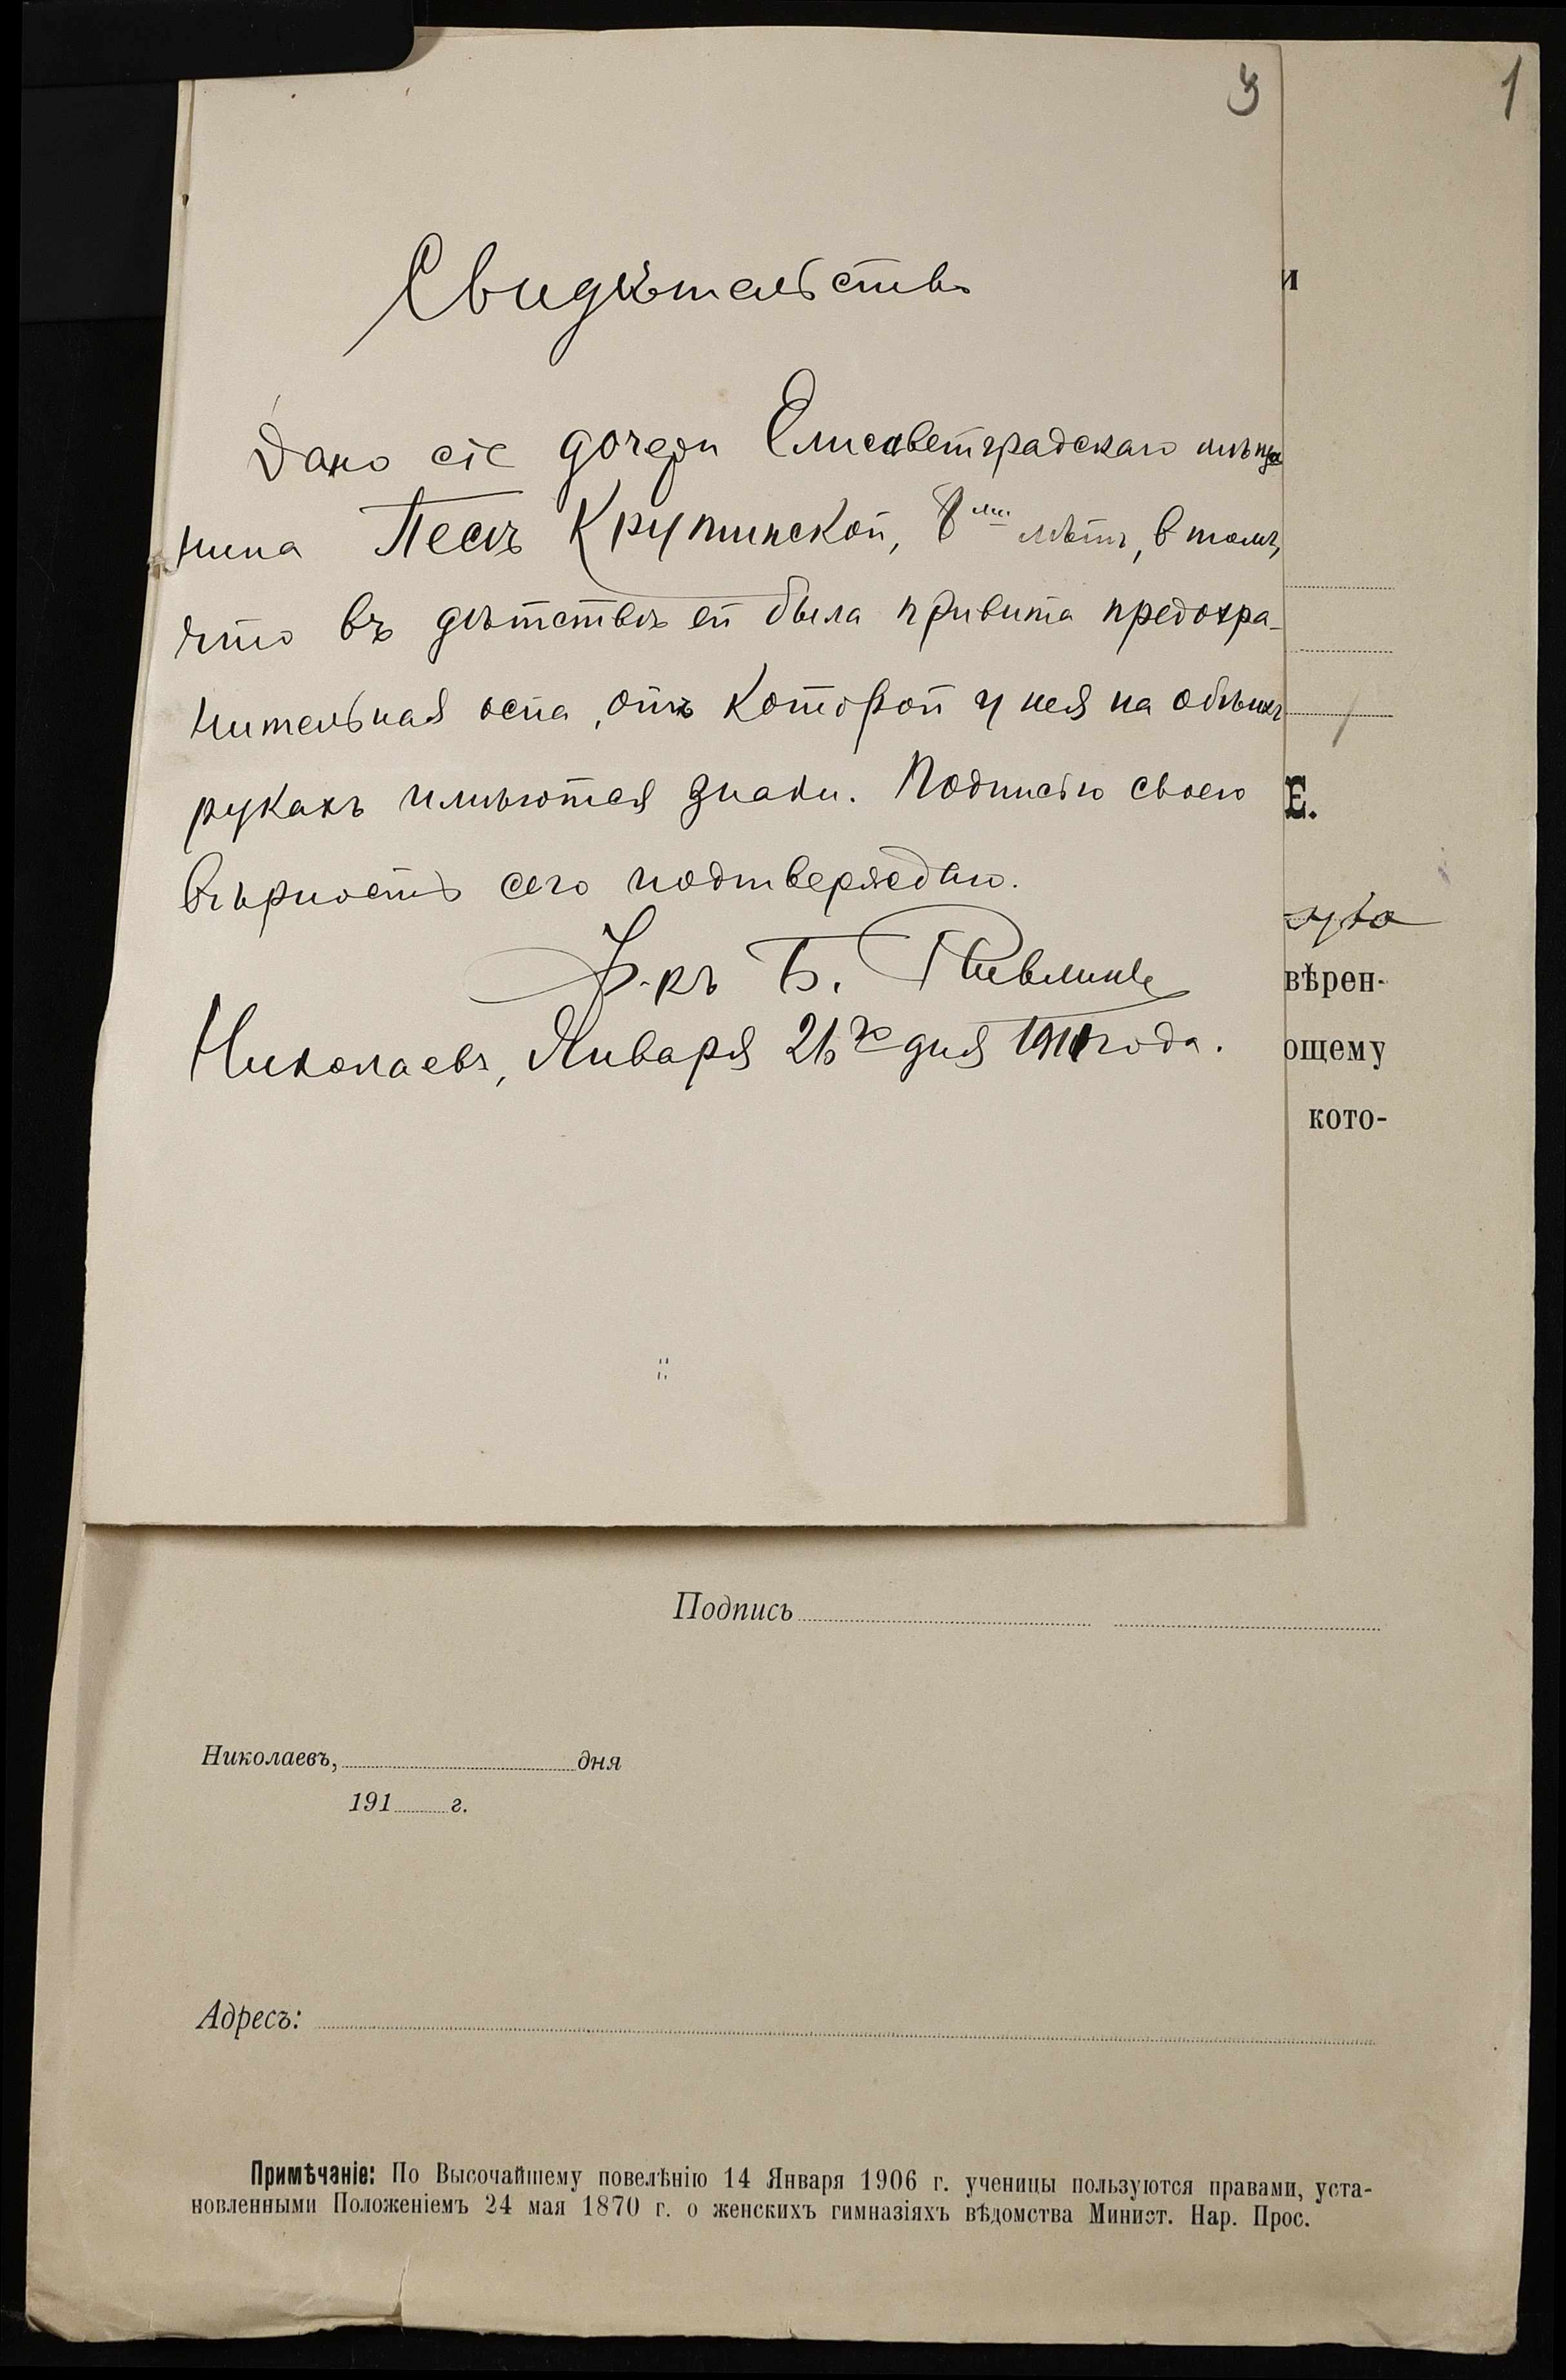 3
1
Свидѣтельство
Дано сіе дочери Елисаветградскаго мѣща
нина Песѣ Крупинской, 8ми лѣтъ, в томъ,
что въ дѣтствѣ ей была привита предохра-
нительная оспа, отъ которой у нея на обѣихъ
рукахъ имѣются знаки. Подписью своею
вѣрность сего подтверждаю.
Д-ръ Б. Ривлинъ
Николаевъ, Января 26го дня 1911 года.
и
Е.
вѣрен-
ощему
кото-
Подпись
Николаевъ, дня
191 г.
Адресъ:
Примѣчаніе: По Высочайшему повелѣнію 14 Января 1906 г. ученицы пользуются правами, уста-
новленными Положеніемъ 24 мая 1870 г. о женскихъ гимназіяхъ вѣдомства Минист. Нар. Прос.